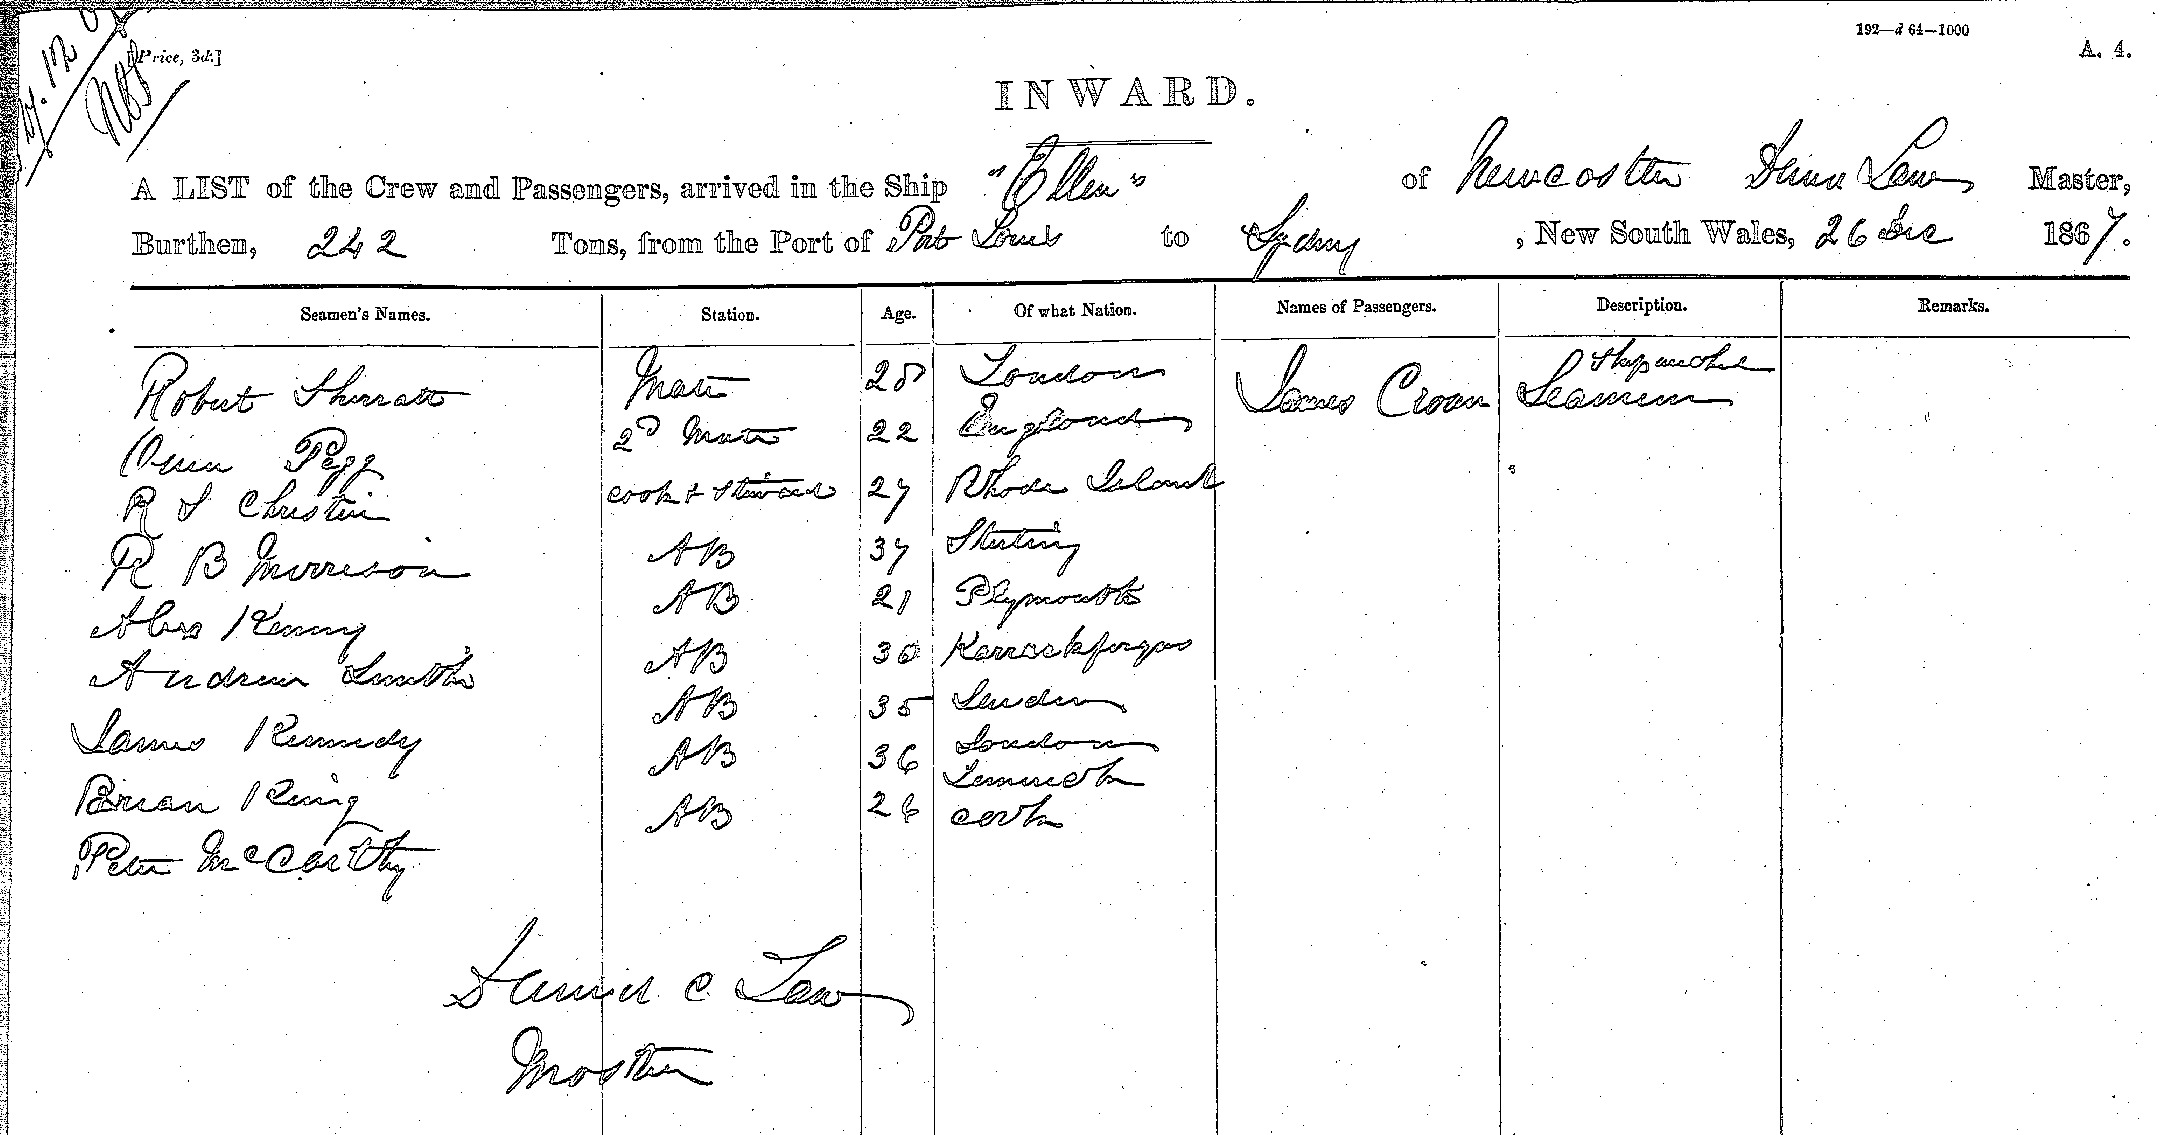 [Price, 3d.]
192—d 64—1000
A. 4.
INWARD.
A LIST of the Crew and Passengers, arrived in the Ship "Ellen" of Newcastle Law Master,
Burthen, 242 Tons, from the Port of Port Louis to Sydney, New South Wales, 26 Dec 1867.
Seamen's Names. Station. Age. Of what Nation. Names of Passengers. Description. Remarks.
Robert Sherratt Mate 28 London James Croan Shipwrecked Seamen
Owen Pegg 2D Mate 22 England
R S Christin cook & Steward 27 Rhode Island
R B Morrison AB 37 Sterling
Alex Kenny AB 21 Plymouth
Andrew Smith AB 30 Karrackfergus
James Kennedy AB 35 London
Brian King AB 36 London Limerick
Peter McCarthy AB 26 cork
Daniel C Law
Master